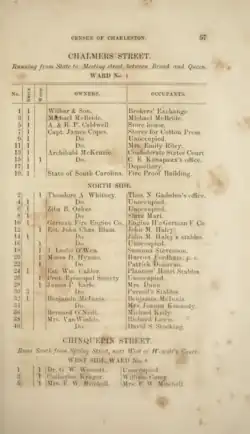 CENSUS OF CHARLESTON. 67
CHALMERS STREET.
Running from State to Meeting street, between Broad and Queen.
WARD No. 1
No. OWNERS. OCCUPANTS.
1 1 Wilbur & Son. Brokers' Exchange
3 1 Michael McBride. Michael McBride.
5 1 A. & R. P. Caldwell Store house.
7 1 Capt. James Copes. Stores for Cotton Press
9 1 Do. Unoccupied.
11 1 Do. Mrs. Emily Riley.
13 1 Archibald McKenzie. Confederate States Court
15 1 Do. C. R. Kanapaux's office.
17 1 Do. Depository.
19 1 State of South Carolina. Fire Proof Building.
NORTH SIDE.
2 Theodora A. Whitney. Thos. N. Gadsden's office.
4 Do. Unoccupied.
6 Ziba B. Oakes Unoccupied.
8 Do. Mari.
German Fire Engine Co. Engine House German F Co
Est. John Chas. Blum. John M. Haley.
Do. John M. Haley's stables
Do. Unoccupied.
Susanna Stevenson.
Moses D. Hyams. Harriet Fordham,
Do. Patrick Donovan.
Est. Wm. Calder Planters' Hotel Stables
Prot. Episcopal Society Unoccupied.
James P. Earle. Mrs. Dunn
Do. Stables
Benjamin McInnis Benjamin McInnis
Do. Mrs. Joanna Kennedy.
Bernard O'Neill. Michael Kelly
Mrs. Van Winkle. Richard
Do. David S. Stocking.
CHINQUEPIN STREET.
Runs South from Spring Street, next West of Court.
WEST SIDE, WARD No.
1 Dr. G. W. Unoccupied.
3 Catharine William Camp
5 Mrs. F. W. Mitchell. Mrs. F. W. Mitchell